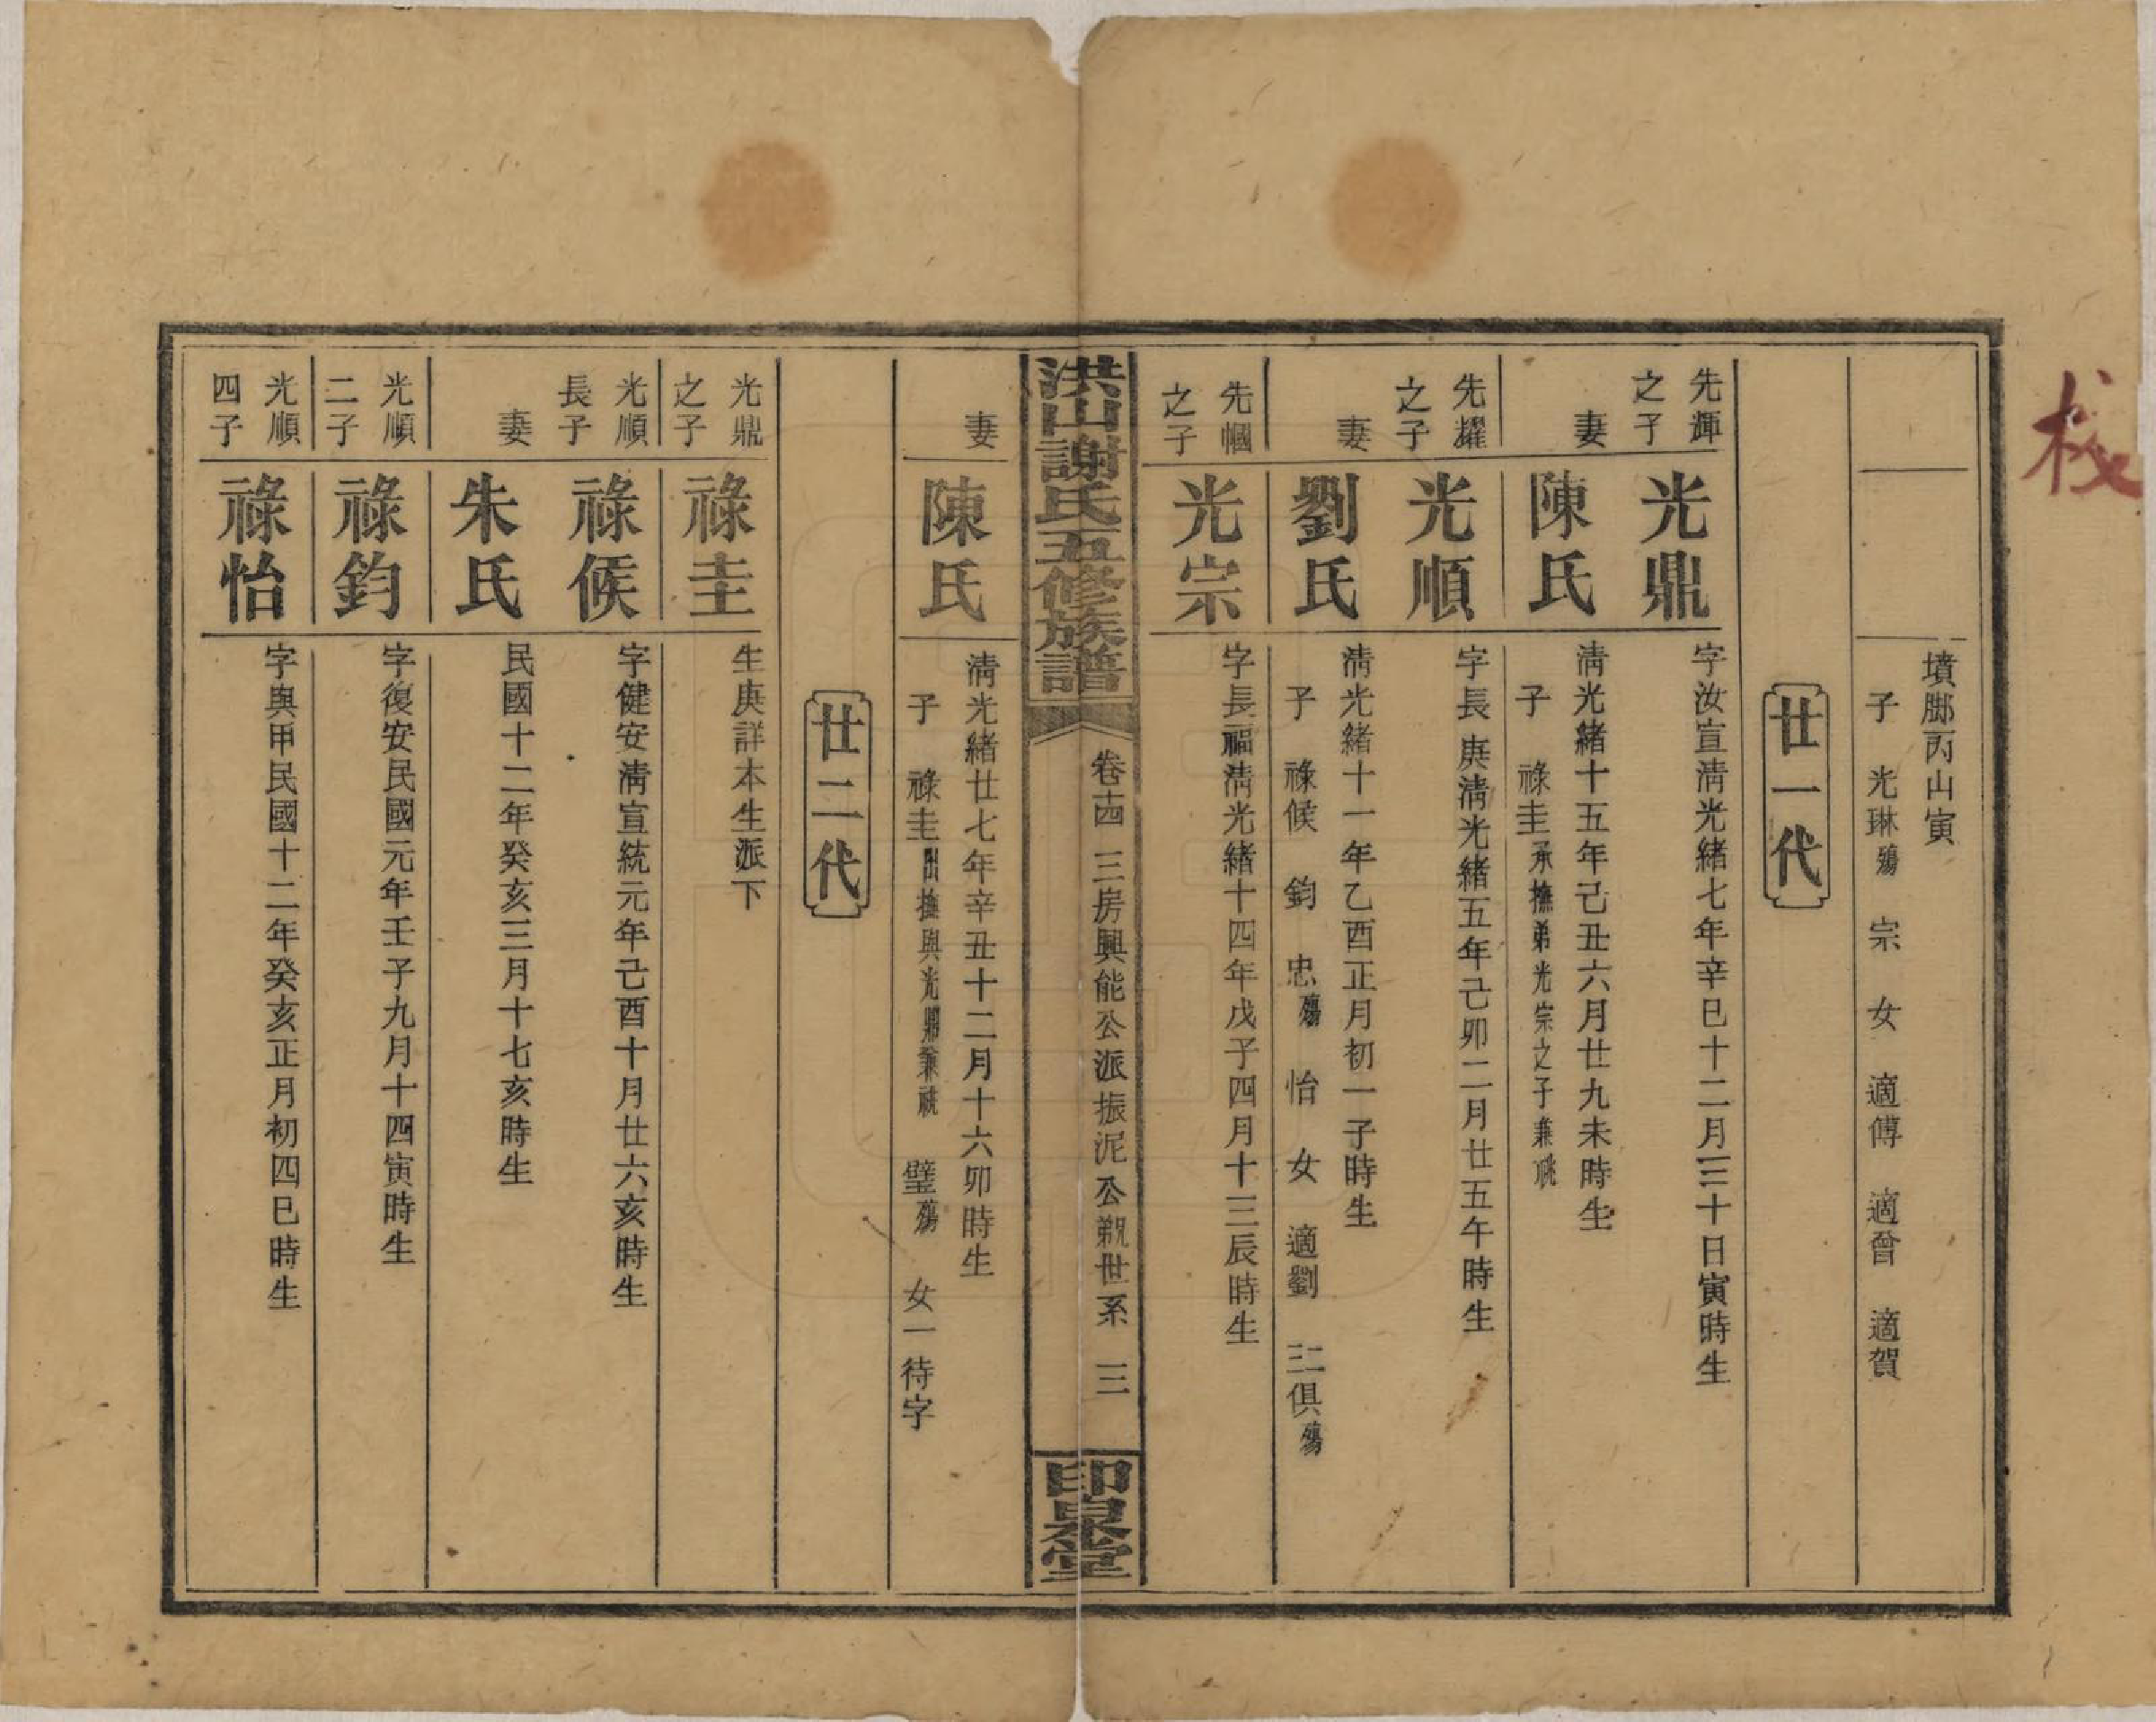 校
墳脚丙山寅
子 光琳殤 宗 女 適傅 適曾 適賀
廿一代
先輝之子 光鼎 字汝宣清光緒七年辛巳十二月三十日寅時生
妻 陳氏 清光緒十五年己丑六月廿九未時生
子 祿圭承撫弟光宗之子兼祧
先耀之子 光順 字長庚清光緒五年己卯二月廿五午時生
妻 劉氏 清光緒十一年乙酉正月初一子時生
子 祿候 鈞 忠殤 怡 女 適劉 二三俱殤
先幗之子 光宗 字長福清光緒十四年戊子四月十三辰時生
洪山謝氏五修族譜 卷十四 三房興能公派振泥公 世系 三 印泉堂
妻 陳氏 清光緒廿七年辛丑十二月十六卯時生
子 祿圭出撫與光鼎兼祧 璧殤 女一待字
廿二代
光鼎之子 祿圭 生庚詳本生派下
光順長子 祿候 字健安清宣統元年己酉十月廿六亥時生
妻 朱氏 民國十二年癸亥三月十七亥時生
光順二子 祿鈞 字復安民國元年壬子九月十四寅時生
光順四子 祿怡 字與甲民國十二年癸亥正月初四巳時生